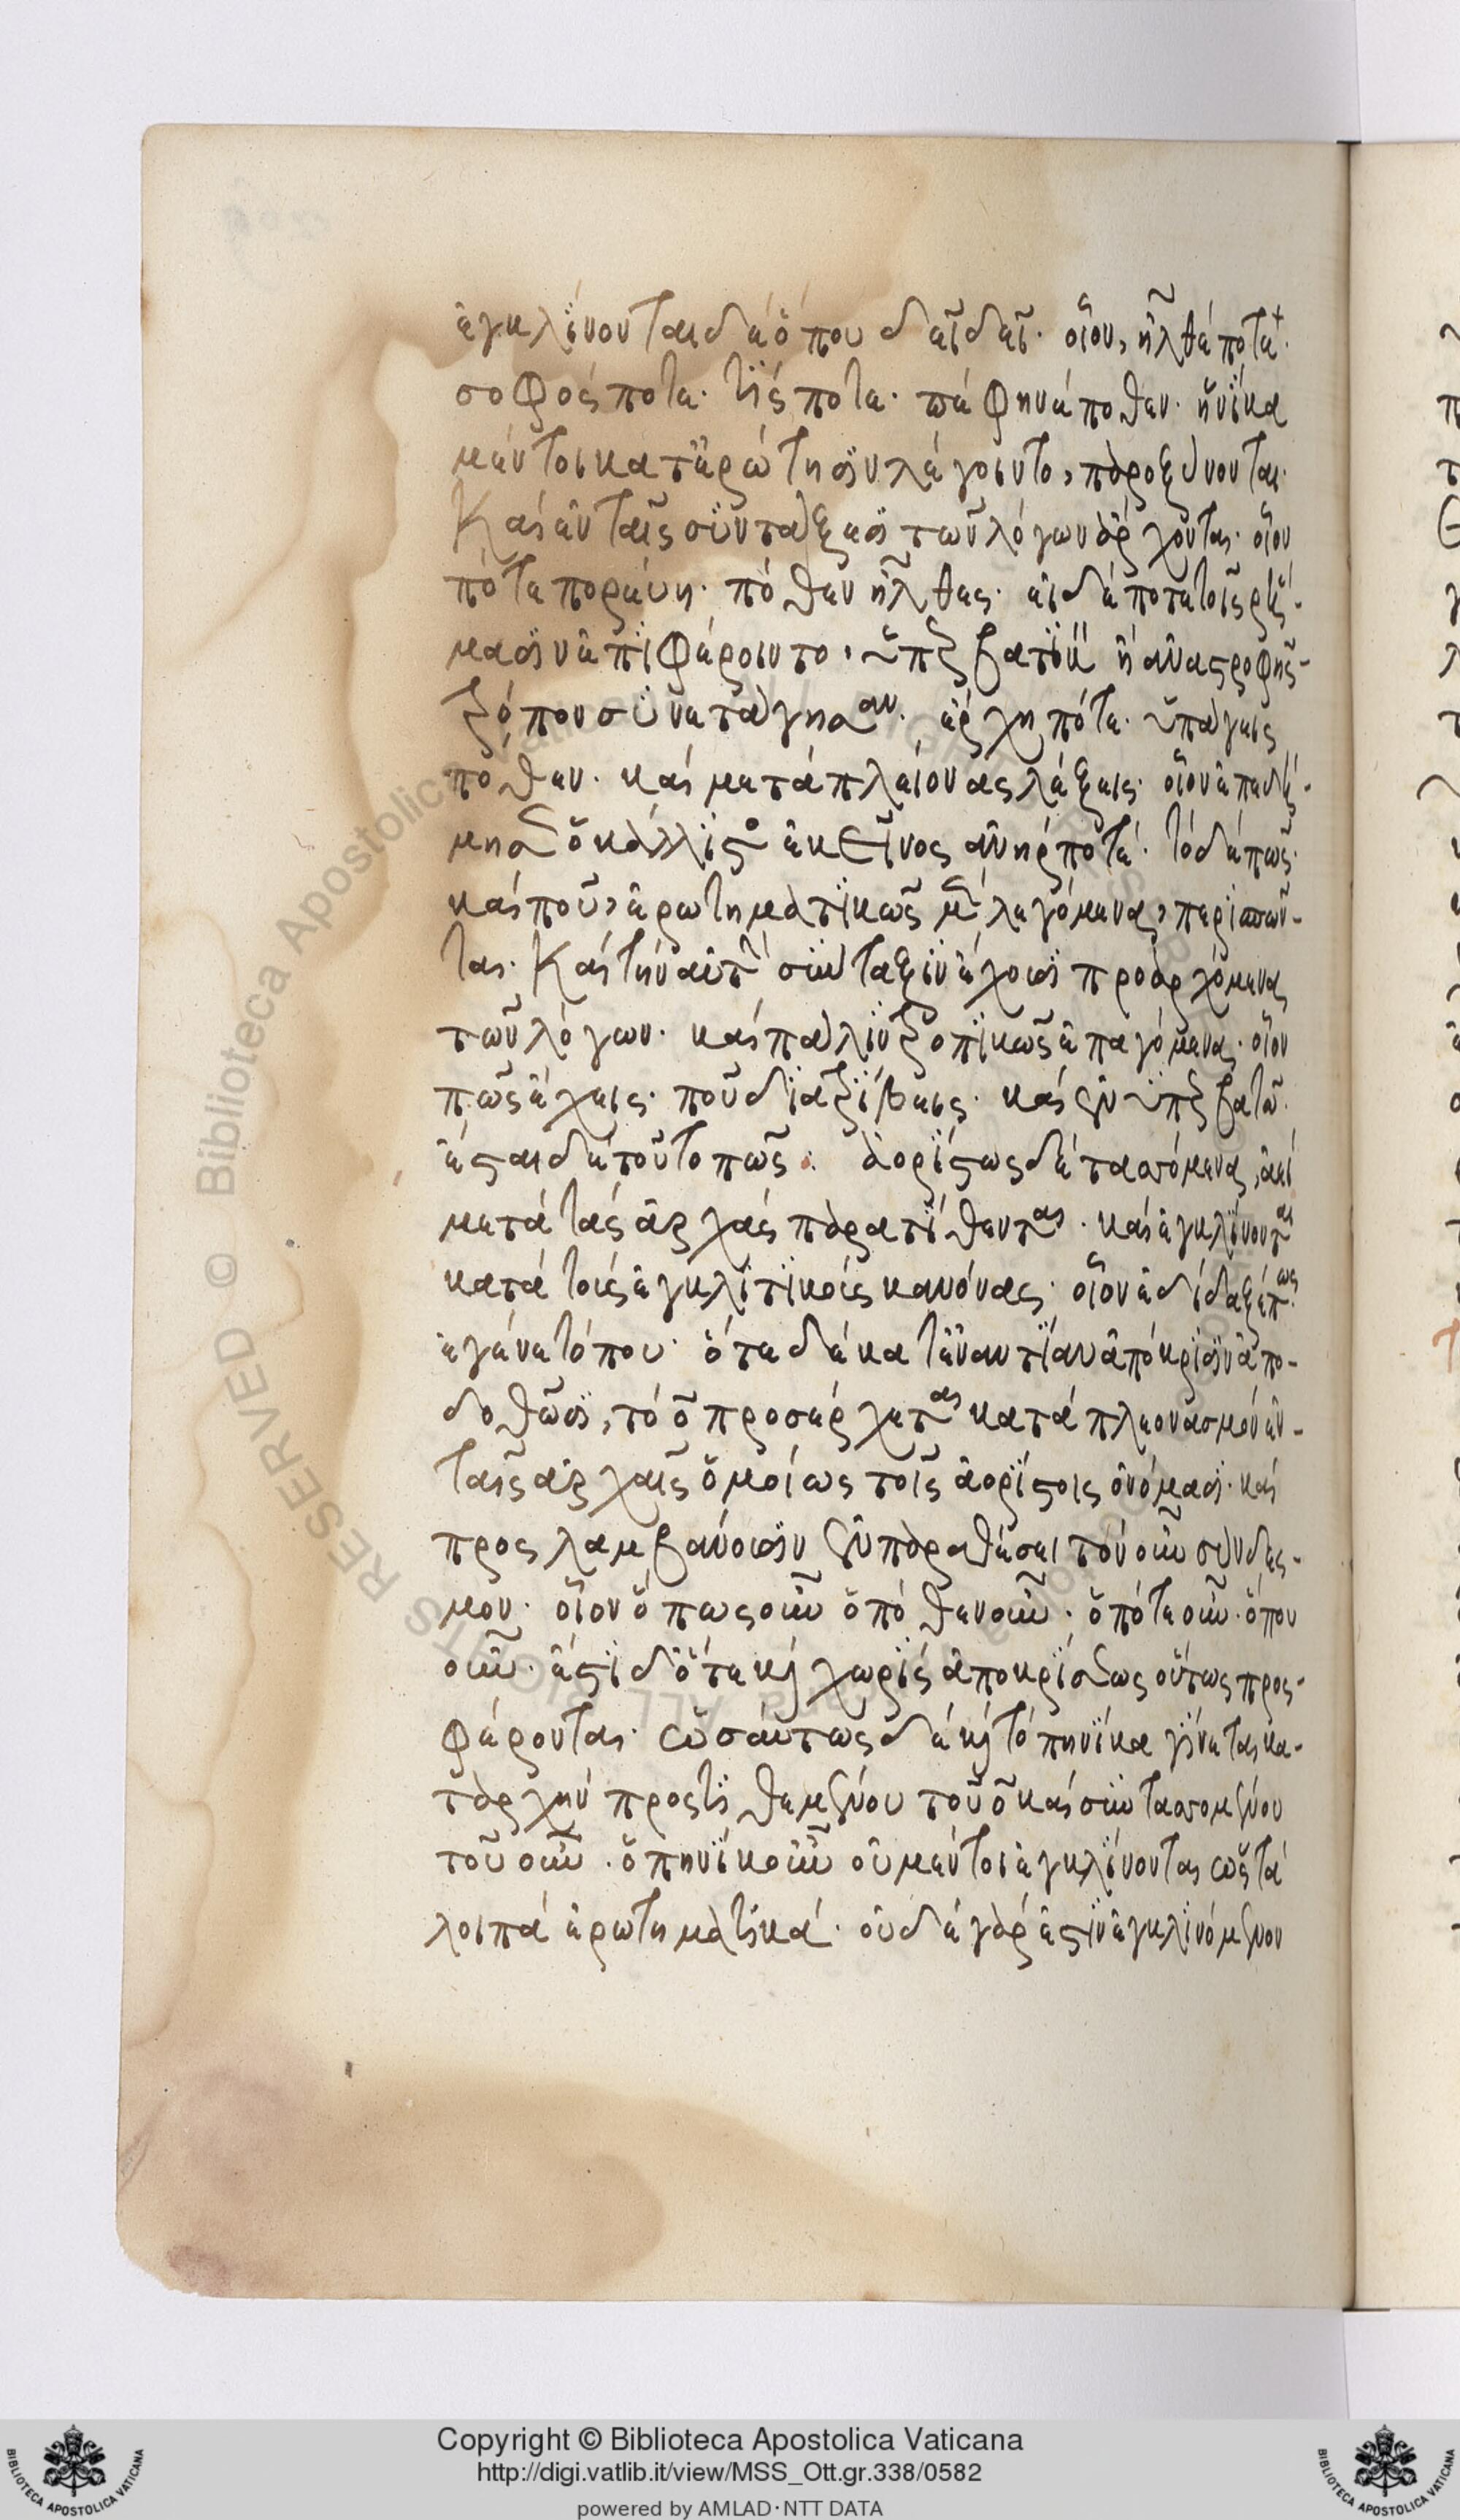 ἐγκλίνονται δὲ ὅπου δεῖ δεῖ· οἷον, ἦλθέ ποτε·
σοφός ποτε· τίς ποτε· πέφηνέ ποθεν· ἡνίκα
μέντοι κατ' ἐρώτησιν λέγοιντο, παροξύνονται·
Καὶ ἐν ταῖς συντάξεσι τῶν λόγων ἄρχονται· οἷον
πότε πορεύῃ· πόθεν ἦλθες· εἰ δέ ποτε τοῖς ῥή-
μασιν ἐπιφέροιντο, ὑπερβατῷ ἢ ἀναστροφῆς
τρόπου συνετάγησαν· ἔρχῃ πότε· ὑπάγεις
πόθεν· καὶ μετὰ πλείονας λέξεις· οἷον ἐπεδή-
μησεν ὁ κάλλιστος ἐκεῖνος ἀνὴρ ποτέ· τὸ δὲ πῶς·
καὶ ποῦ, ἐρωτηματικῶς μὲν λεγόμενα, περισπῶν-
ται· Καὶ τὴν αὐτὴν σύνταξιν ἔχουσι προαρχόμενα
τῶν λόγων· καὶ πάλιν τροπικῶς ἐπαγόμενα· οἷον
πῶς ἔχεις· ποῦ διατρίβεις· καὶ ἐν ὑπερβατῷ·
ἔσται δὲ τοῦτο πῶς· ἀορίστως δὲ τασσόμενα, ἀεὶ
μετὰ τὰς ἀρχὰς παρατίθενται· καὶ ἐγκλίνονται
κατὰ τοὺς ἐγκλιτικοὺς κανόνας· οἷον ἐδίδαξέ πως·
ἐγένετό που· ὅτε δὲ κατ' ἐναντίαν ἀπόκρισιν ἀπο-
δοθῶσι, τὸ ο προσέρχεται κατὰ πλεονασμὸν ἐν
ταῖς ἀρχαῖς ὁμοίως τοῖς ἀορίστοις ὀνόμασι· καὶ
προσλαμβάνουσιν ἐν παραθέσει τὸν οὖν σύνδεσ-
μον· οἷον ὅπως οὖν ὁπόθεν οὖν· ὁπότε οὖν· ὅπου
οὖν· ἔστι δ' ὅτε καὶ χωρὶς ἀποκρίσεως οὕτως προσ-
φέρονται· ὡσαύτως δὲ καὶ τὸ πηνίκα γίνεται κα-
τ' ἀρχὴν προστιθεμένου τοῦ ο καὶ συντασσομένου
τοῦ οὖν· ὁπηνίκ' οὖν οὐ μέντοι ἐγκλίνονται ὡς τὰ
λοιπὰ ἐρωτηματικά· οὐδὲ γάρ ἐστιν ἐγκλινόμενον
Copyright © Biblioteca Apostolica Vaticana
http://digi.vatlib.it/view/MSS_Ott.gr.338/0582
powered by AMLAD·NTT DATA